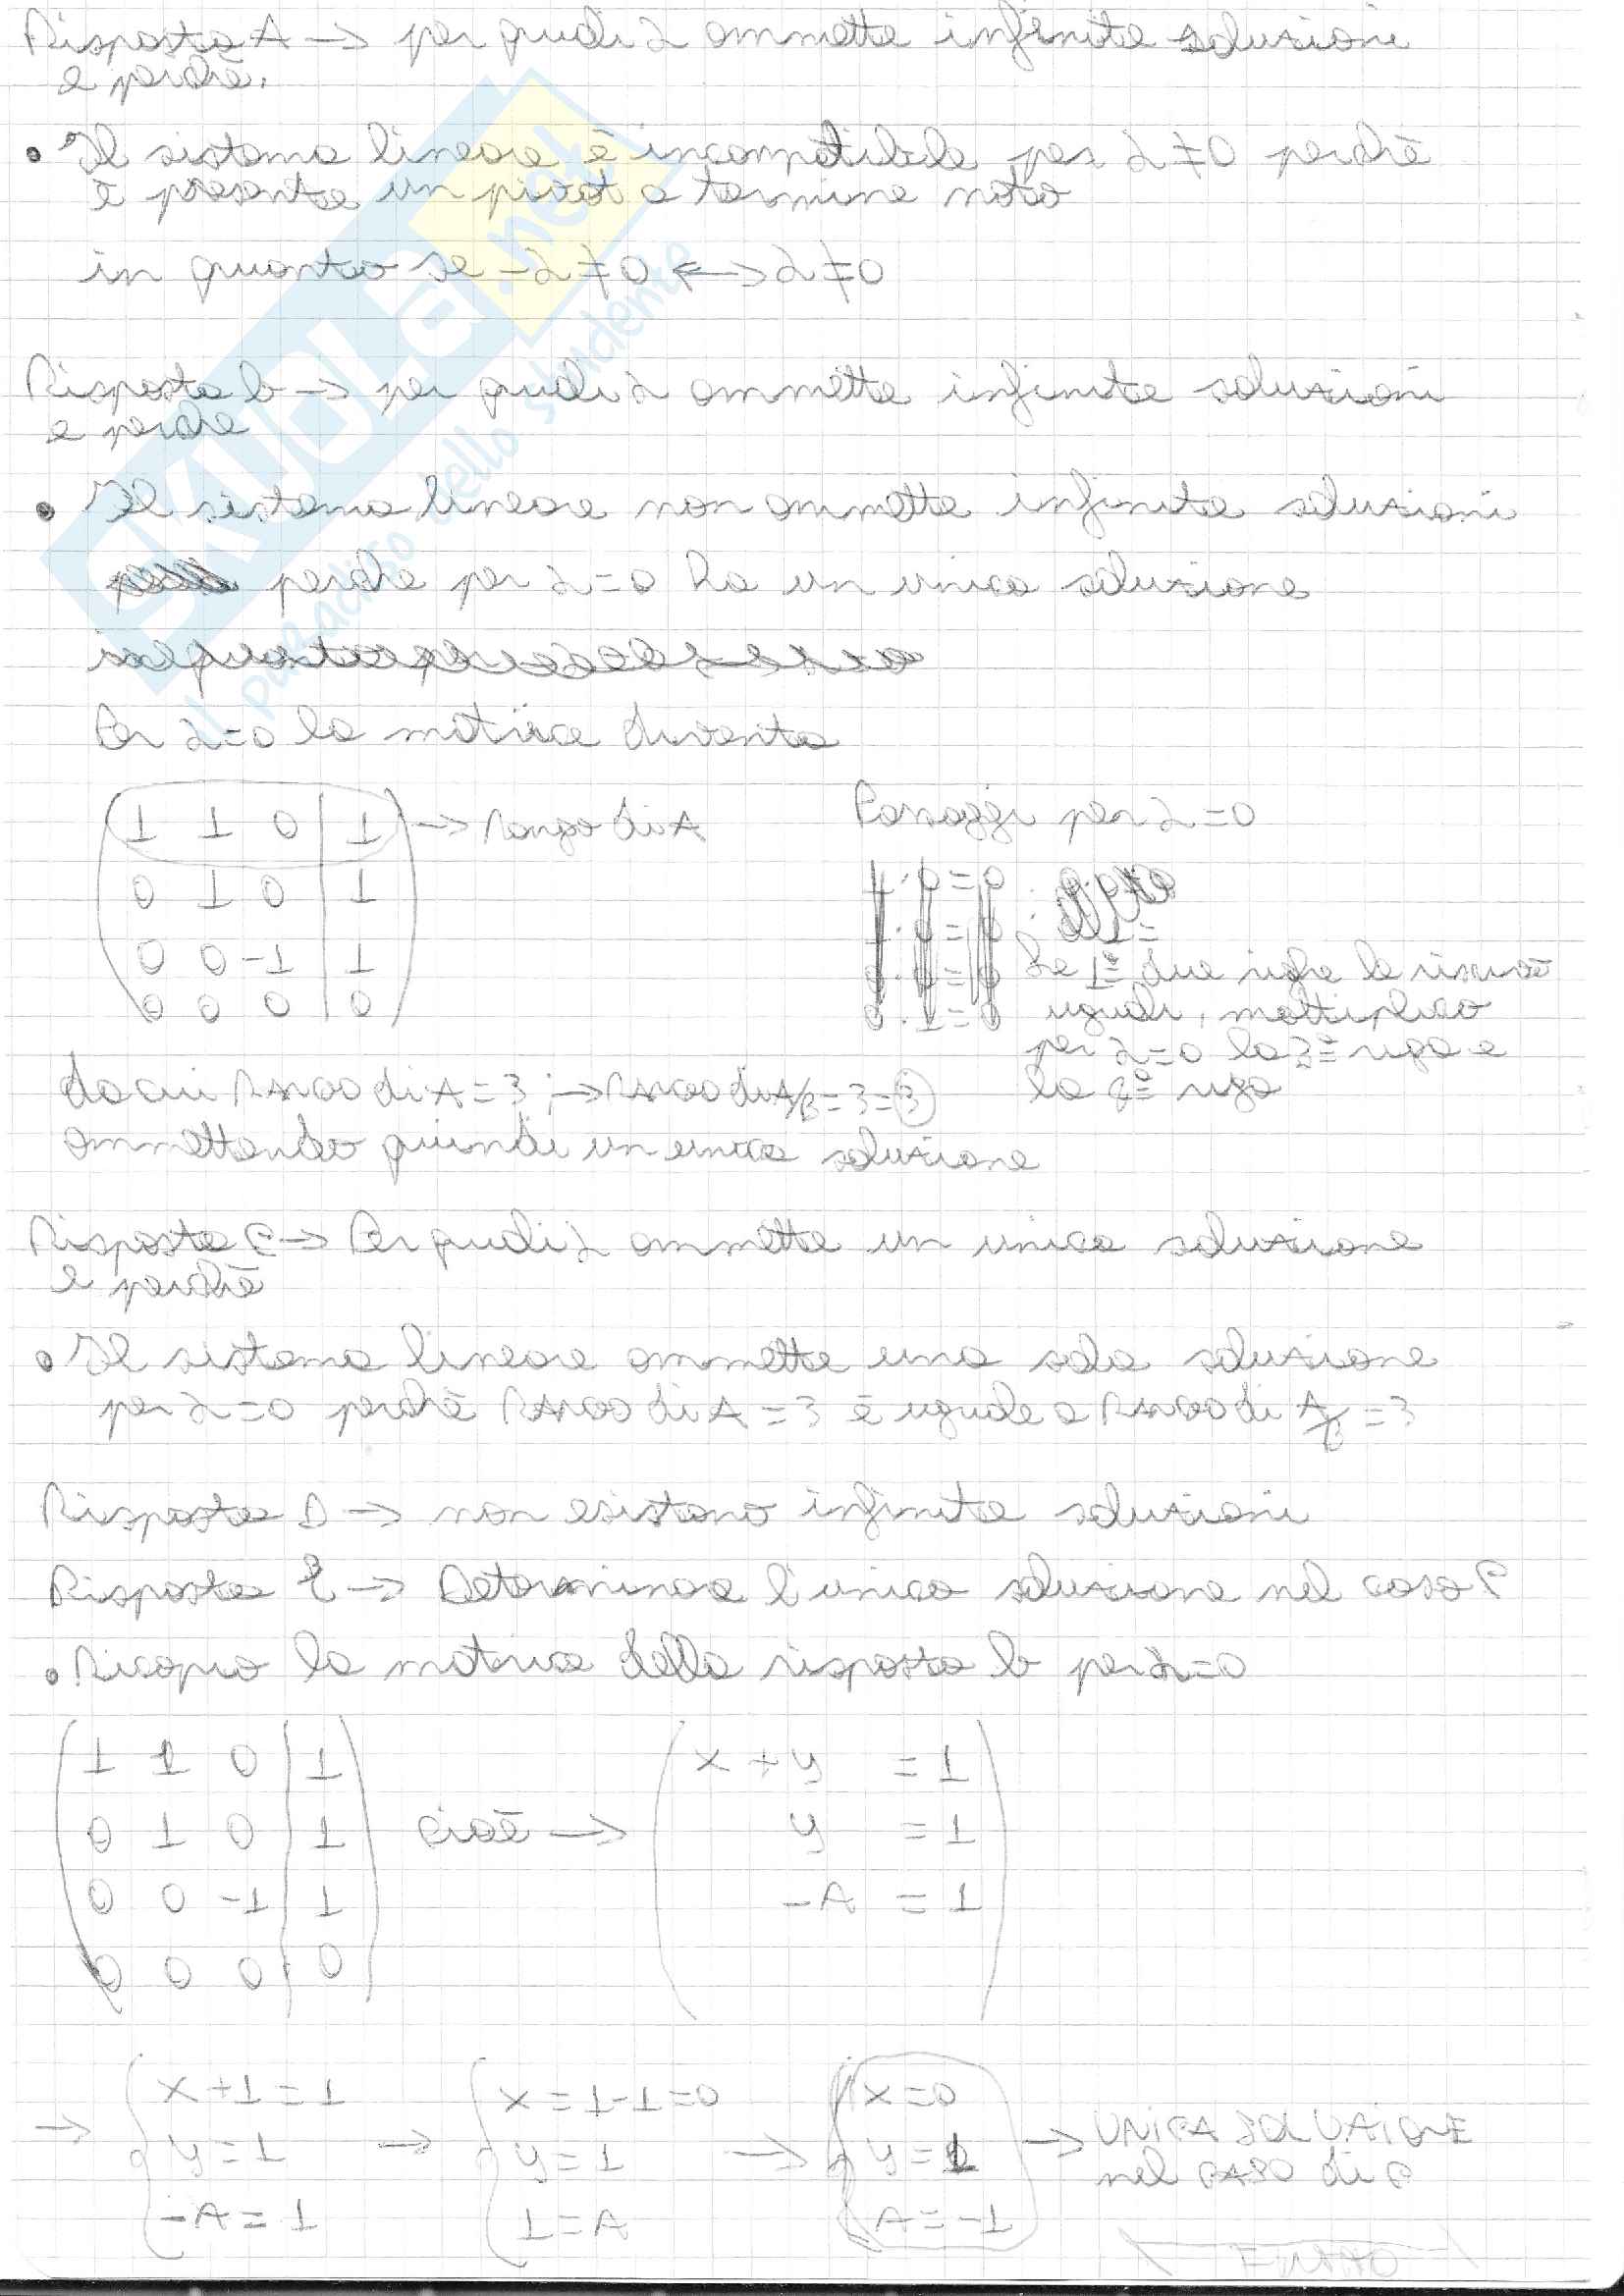 Risposta A → per quali λ ammette infinite soluzioni
e perchè.
• Il sistema lineare è incompatibile per λ ≠ 0 perchè
è presente un pivot a termine noto
in quanto se -λ ≠ 0 ↔ λ ≠ 0
Risposta b → per quali λ ammette infinite soluzioni
e perche
• Il sistema lineare non ammette infinite soluzioni
perche per λ=0 ha un unica soluzione
Per λ=0 la matrice diventa
1 1 0 | 1 → Rango di A
0 1 0 | 1
0 0 -1 | 1
0 0 0 | 0
Passaggi per λ=0
Le 1e due righe le riscrivo
uguali, moltiplico
per λ=0 la 3a riga e
la 4a riga
da cui RANGO di A = 3 ; → RANGO di A/B = 3 = 3
ammettendo quindi un unica soluzione
Risposta C → Per quali λ ammette un unica soluzione
e perchè
• Il sistema lineare ammette una sola soluzione
per λ=0 perchè RANGO di A = 3 è uguale a RANGO di A/B = 3
Risposta D → non esistono infinite soluzioni
Risposta E → Determinare l'unica soluzione nel caso C
• Ricopio la matrice della risposta b per λ=0
1 1 0 | 1
0 1 0 | 1
0 0 -1 | 1
0 0 0 | 0
cioè →
x + y = 1
y = 1
-z = 1
→ x + 1 = 1
y = 1
-z = 1
→ x = 1-1 = 0
y = 1
1 = z
→ x = 0
y = 1
z = -1
→ UNICA SOLUZIONE
nel CASO di C
SKUOLA.net
il paradiso dello studente